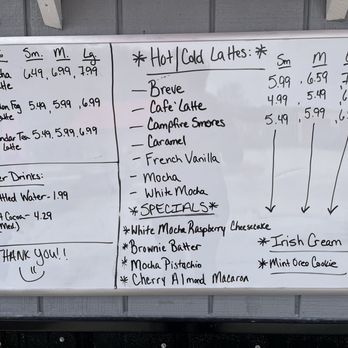 Sm. M. Lg.
6.49, 6.99, 7.99
5.49, 5.99, 6.99
5.49, 5.99, 6.99
Latte
Drinks:
Water - 1.99
Cocoa - 4.29
THANK YOU!!
* Hot/Cold Lattes: *
Sm M
— Breve 5.99, 6.59
— Cafe' Latte 4.99, 5.49
— Campfire Smores 5.49, 5.99
— Caramel
— French Vanilla
— Mocha
— White Mocha
*SPECIALS*
*White Mocha Raspberry Cheesecake
*Brownie Batter
*Mocha Pistachio
*Cherry Almond Macaron
*Irish Cream
*Mint Oreo Cookie